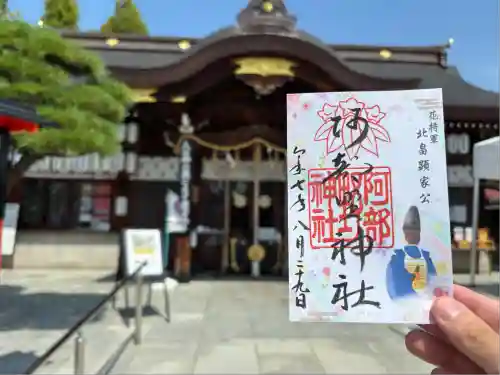 鎮守府将軍
北畠顕家公
阿部野神社
阿部野神社
令和七年八月二十九日